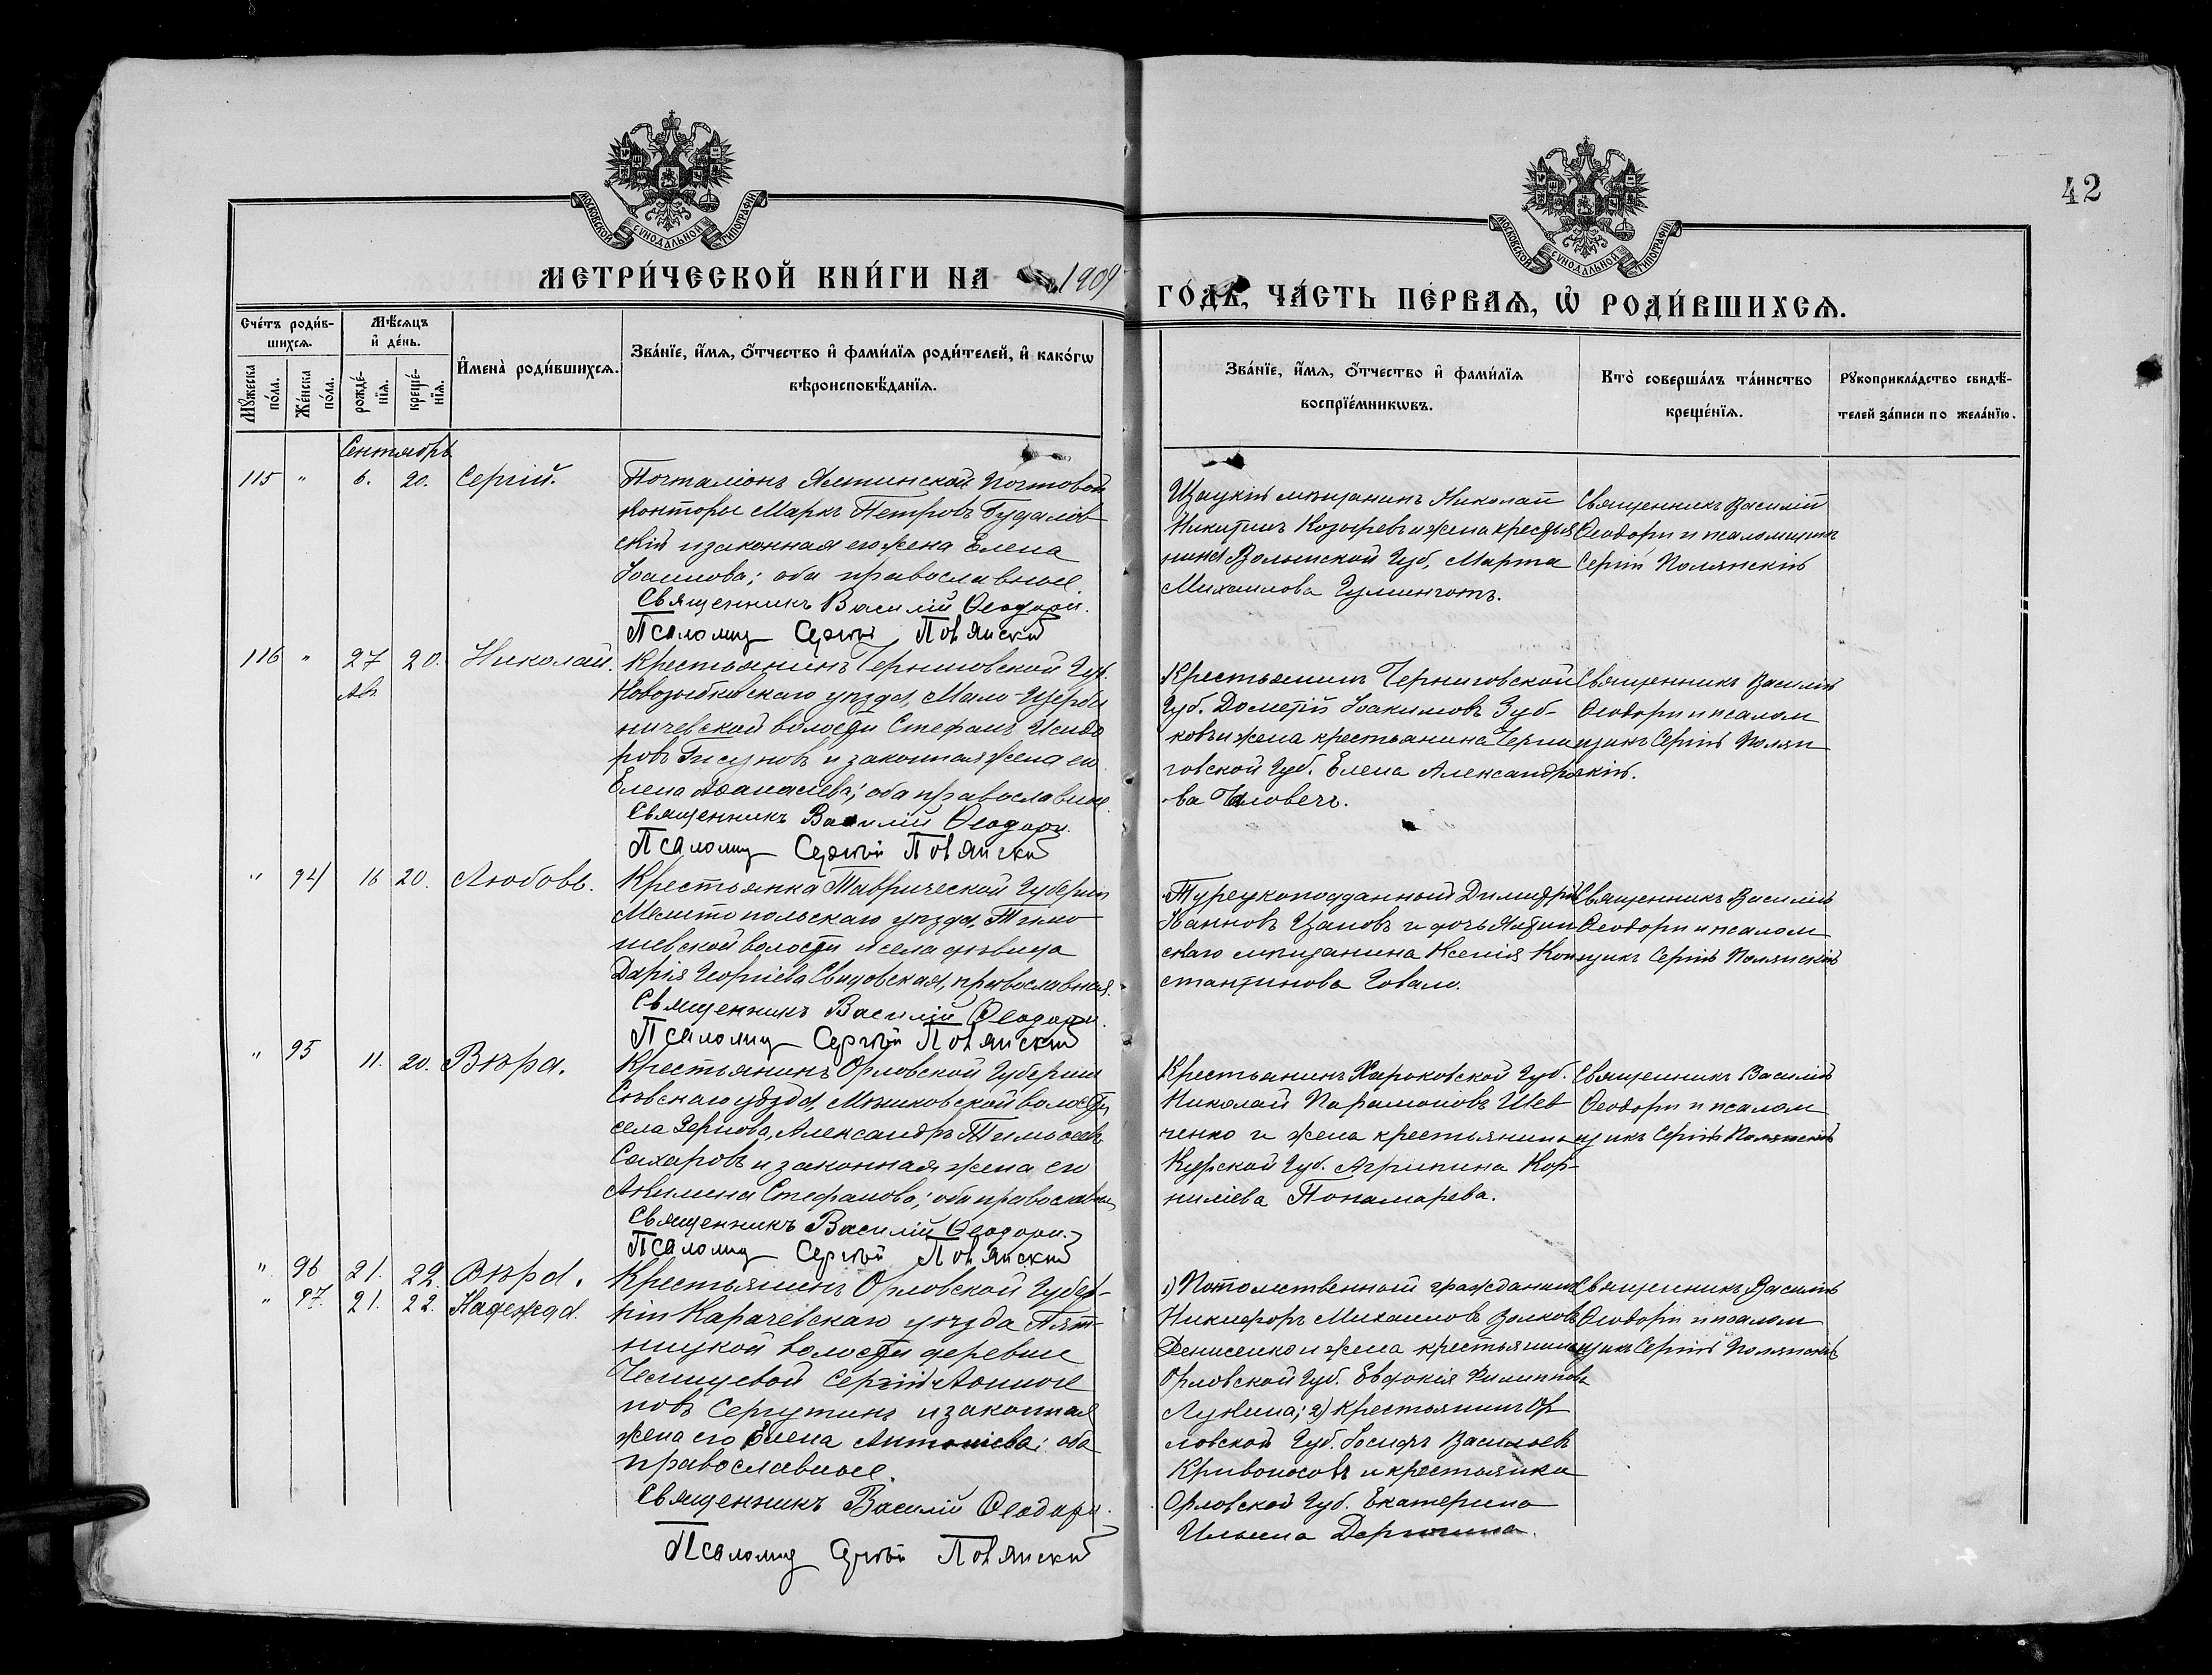 42
МОСКОВСКОЙ СѴНОДАЛЬНОЙ ТИПОГРАФІИ
МОСКОВСКОЙ СѴНОДАЛЬНОЙ ТИПОГРАФІИ
МЕТРИ́ЧЕСКОЙ КНИ́ГИ НА 1909
ГО́ДЪ, ЧА́СТЬ ПЕ́РВАѦ, Ѡ҆ РОДИ́ВШИХСѦ.
Сче́тъ роди́в-
шихсѧ.
Мѣ́сѧцъ
и҆ де́нь.
Мꙋ́жеска
по́ла.
Же́нска
по́ла.
рожде́-
нїѧ.
креще́-
нїѧ.
И҆мена̀ роди́вшихсѧ.
Зва́нїе, и҆́мѧ, ѻ҆́тчество и҆ фами́лїѧ роди́телей, и҆ како́гѡ
вѣроисповѣ́данїѧ.
Зва́нїе, и҆́мѧ, ѻ҆́тчество и҆ фами́лїѧ
воспрїе́мникѡвъ.
Кто̀ соверша́лъ та́инство
креще́нїѧ.
Рꙋкоприкла́дство свидѣ́-
телей за́писи по жела́нїю.
Сентябрь
115 " 6. 20. Сергій.
Почталіонъ Ялтинской Почтовой
Конторы Маркъ Петровъ
скій и законная его жена Елена
православные.
Священникъ Василій Ѳеодори.
Псаломщ Сергій Полянскій
мѣщанинъ Николай
Никитинъ Козыревъ и жена крестья
нина Волынской Губ, Марта
Михаилова
Священникъ Василій
Ѳеодори и псаломщикъ
Сергій Полянскій
116 " 27 20. Николай.
Авг
Крестьянинъ Черниговской Губ.
Новозыбковскаго уѣзда, Мало-Щерби
ничевской волости Стефанъ Исидо
ровъ и законная жена его
Елена оба православные
Священникъ Василій Ѳеодори.
Псаломщ Сергій Полянскій
Крестьянинъ Черниговской
Губ. Дометій Іоакимовъ Зуб-
ковъ и жена крестьянина Черни
говской Губ. Елена Александро
ва Чаловечъ.
Священникъ Василій
Ѳеодори и псалом
щикъ Сергій Полян
скій.
" 94 16 20. Любовь.
Крестьянка Таврической Губерніи
Мелитопольскаго уѣзда, Тимо
шевской волости и села дѣвица
Дарія Георгіева Свидовская, православная.
Священникъ Василій Ѳеодори.
Псаломщ Сергій Полянскій
Турецкоподданный Димитрій
Іоанновъ Цановъ и дочь Ялтин
скаго мѣщанина Ксенія Кон
стантинова
Священникъ Василій
Ѳеодори и псалом
щикъ Сергій Полянскій
" 95 11. 20. Вѣра.
Крестьянинъ Орловской Губерніи
Сѣвскаго уѣзда, волости
села Зернова, Александръ Тимоѳеевъ
Сахаровъ и законная жена его
Акилина Стефанова; оба православные
Священникъ Василій Ѳеодори.
Псаломщ Сергій Полянскій
Крестьянинъ Харьковской Губ.
Николай Парамоновъ Шев
ченко и жена крестьянина
Курской Губ. Агрипина Кор-
нилiева Понамарева.
Священникъ Василій
Ѳеодори и псалом
щикъ Сергій Полянскій
" 96 21. 22. Вѣра.
" 97. 21. 22. Надежда.
Крестьянинъ Орловской Губер-
ніи Карачевскаго уѣзда Пят-
ницкой волости деревни
Сергій
новъ Сергутинъ и законная
жена его Елена Антоніева; оба
православные.
Священникъ Василій Ѳеодори.
Псаломщ Сергій Полянскій
1) Потомственный гражданинъ
Никифоръ Михаиловъ Волковъ
Денисенко и жена крестьянина
Орловской Губ. Евдокія Филиппова
Лукина; 2) Крестьянинъ Ор
ловской Губ. Іосифъ Васильевъ
Кривоносовъ и крестьянка
Орловской Губ. Екатерина
Ильина
Священникъ Василій
Ѳеодори и псалом
щикъ Сергій Полянскій